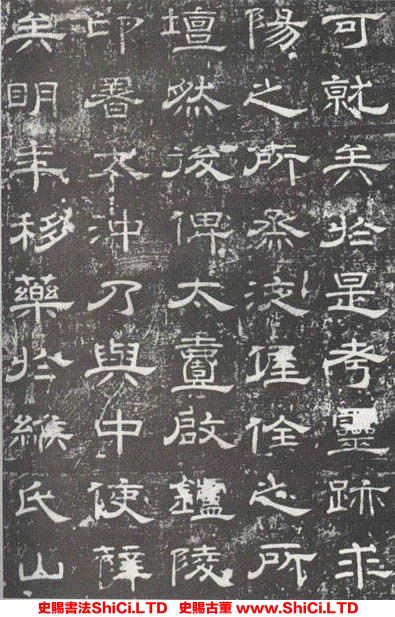 可就矣於是考靈跡求
陽之所烝液偓佺之所
壇然後俾太壹啟鑪陵
印署太沖乃與中使薛
矣明年移藥於緱氏山
史賜書法ShiCi.LTD 史賜古董 www.ShiCi.LTD